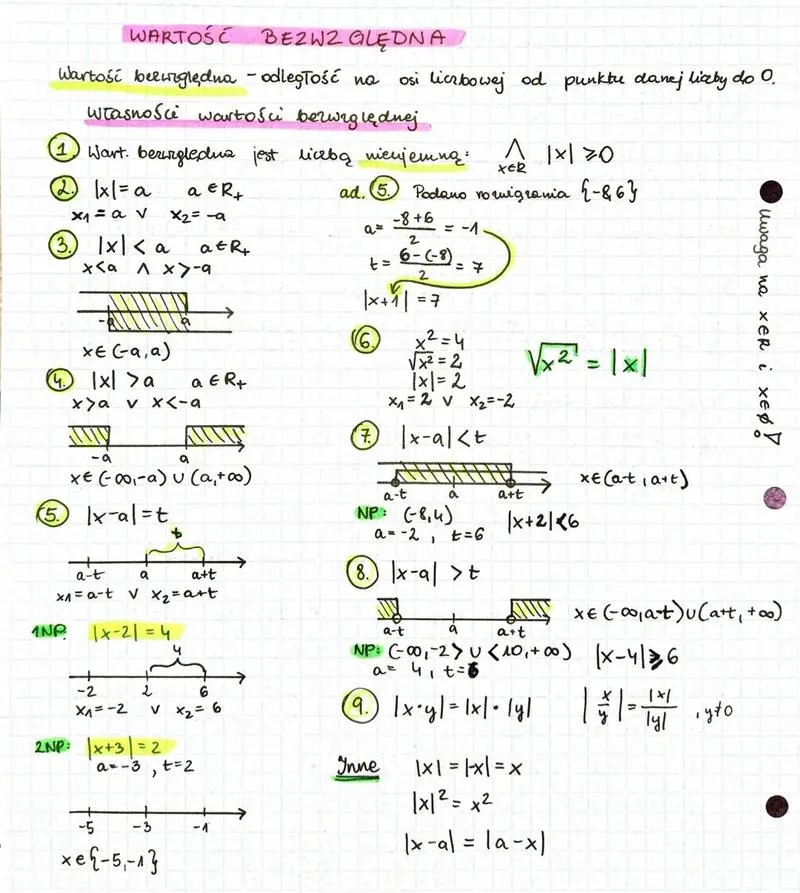 WARTOŚĆ BEZWZGLĘDNA
Wartość bezwzględna - odległość na osi liczbowej od punktu danej liczby do 0.
Własności wartości bezwzględnej
1. Wart. bezwzględna jest liczbą nieujemną: ⋀ x∈R |x| ≥ 0
2. |x| = a a ∈ R+
x1 = a ∨ x2 = -a
3. |x| < a a ∈ R+
x < a ∧ x > -a
-a a
x ∈ (-a, a)
4. |x| > a a ∈ R+
x > a ∨ x < -a
-a a
x ∈ (-∞, -a) ∪ (a, +∞)
5. |x-a| = t
t
a-t a a+t
x1 = a-t ∨ x2 = a+t
1NP. |x-2| = 4
4
-2 2 6
x1 = -2 ∨ x2 = 6
2NP: |x+3| = 2
a = -3, t = 2
-5 -3 -1
x ∈ {-5, -1}
ad. 5. Podano rozwiązania {-8, 6}
a = (-8+6)/2 = -1
t = (6-(-8))/2 = 7
|x+1| = 7
6. x² = 4
√x² = 2
|x| = 2
x1 = 2 ∨ x2 = -2
√x² = |x|
7. |x-a| < t
a-t a a+t
x ∈ (a-t, a+t)
NP: (-8, 4) |x+2| < 6
a = -2, t = 6
8. |x-a| > t
a-t a a+t
x ∈ (-∞, a-t) ∪ (a+t, +∞)
NP: (-∞, -2> ∪ <10, +∞) |x-4| ≥ 6
a = 4, t = 6
9. |x·y| = |x|·|y| |x/y| = |x|/|y|, y≠0
Inne |x| = |-x| = x
|x|² = x²
|x-a| = |a-x|
Uwaga na x∈R i x∈∅!